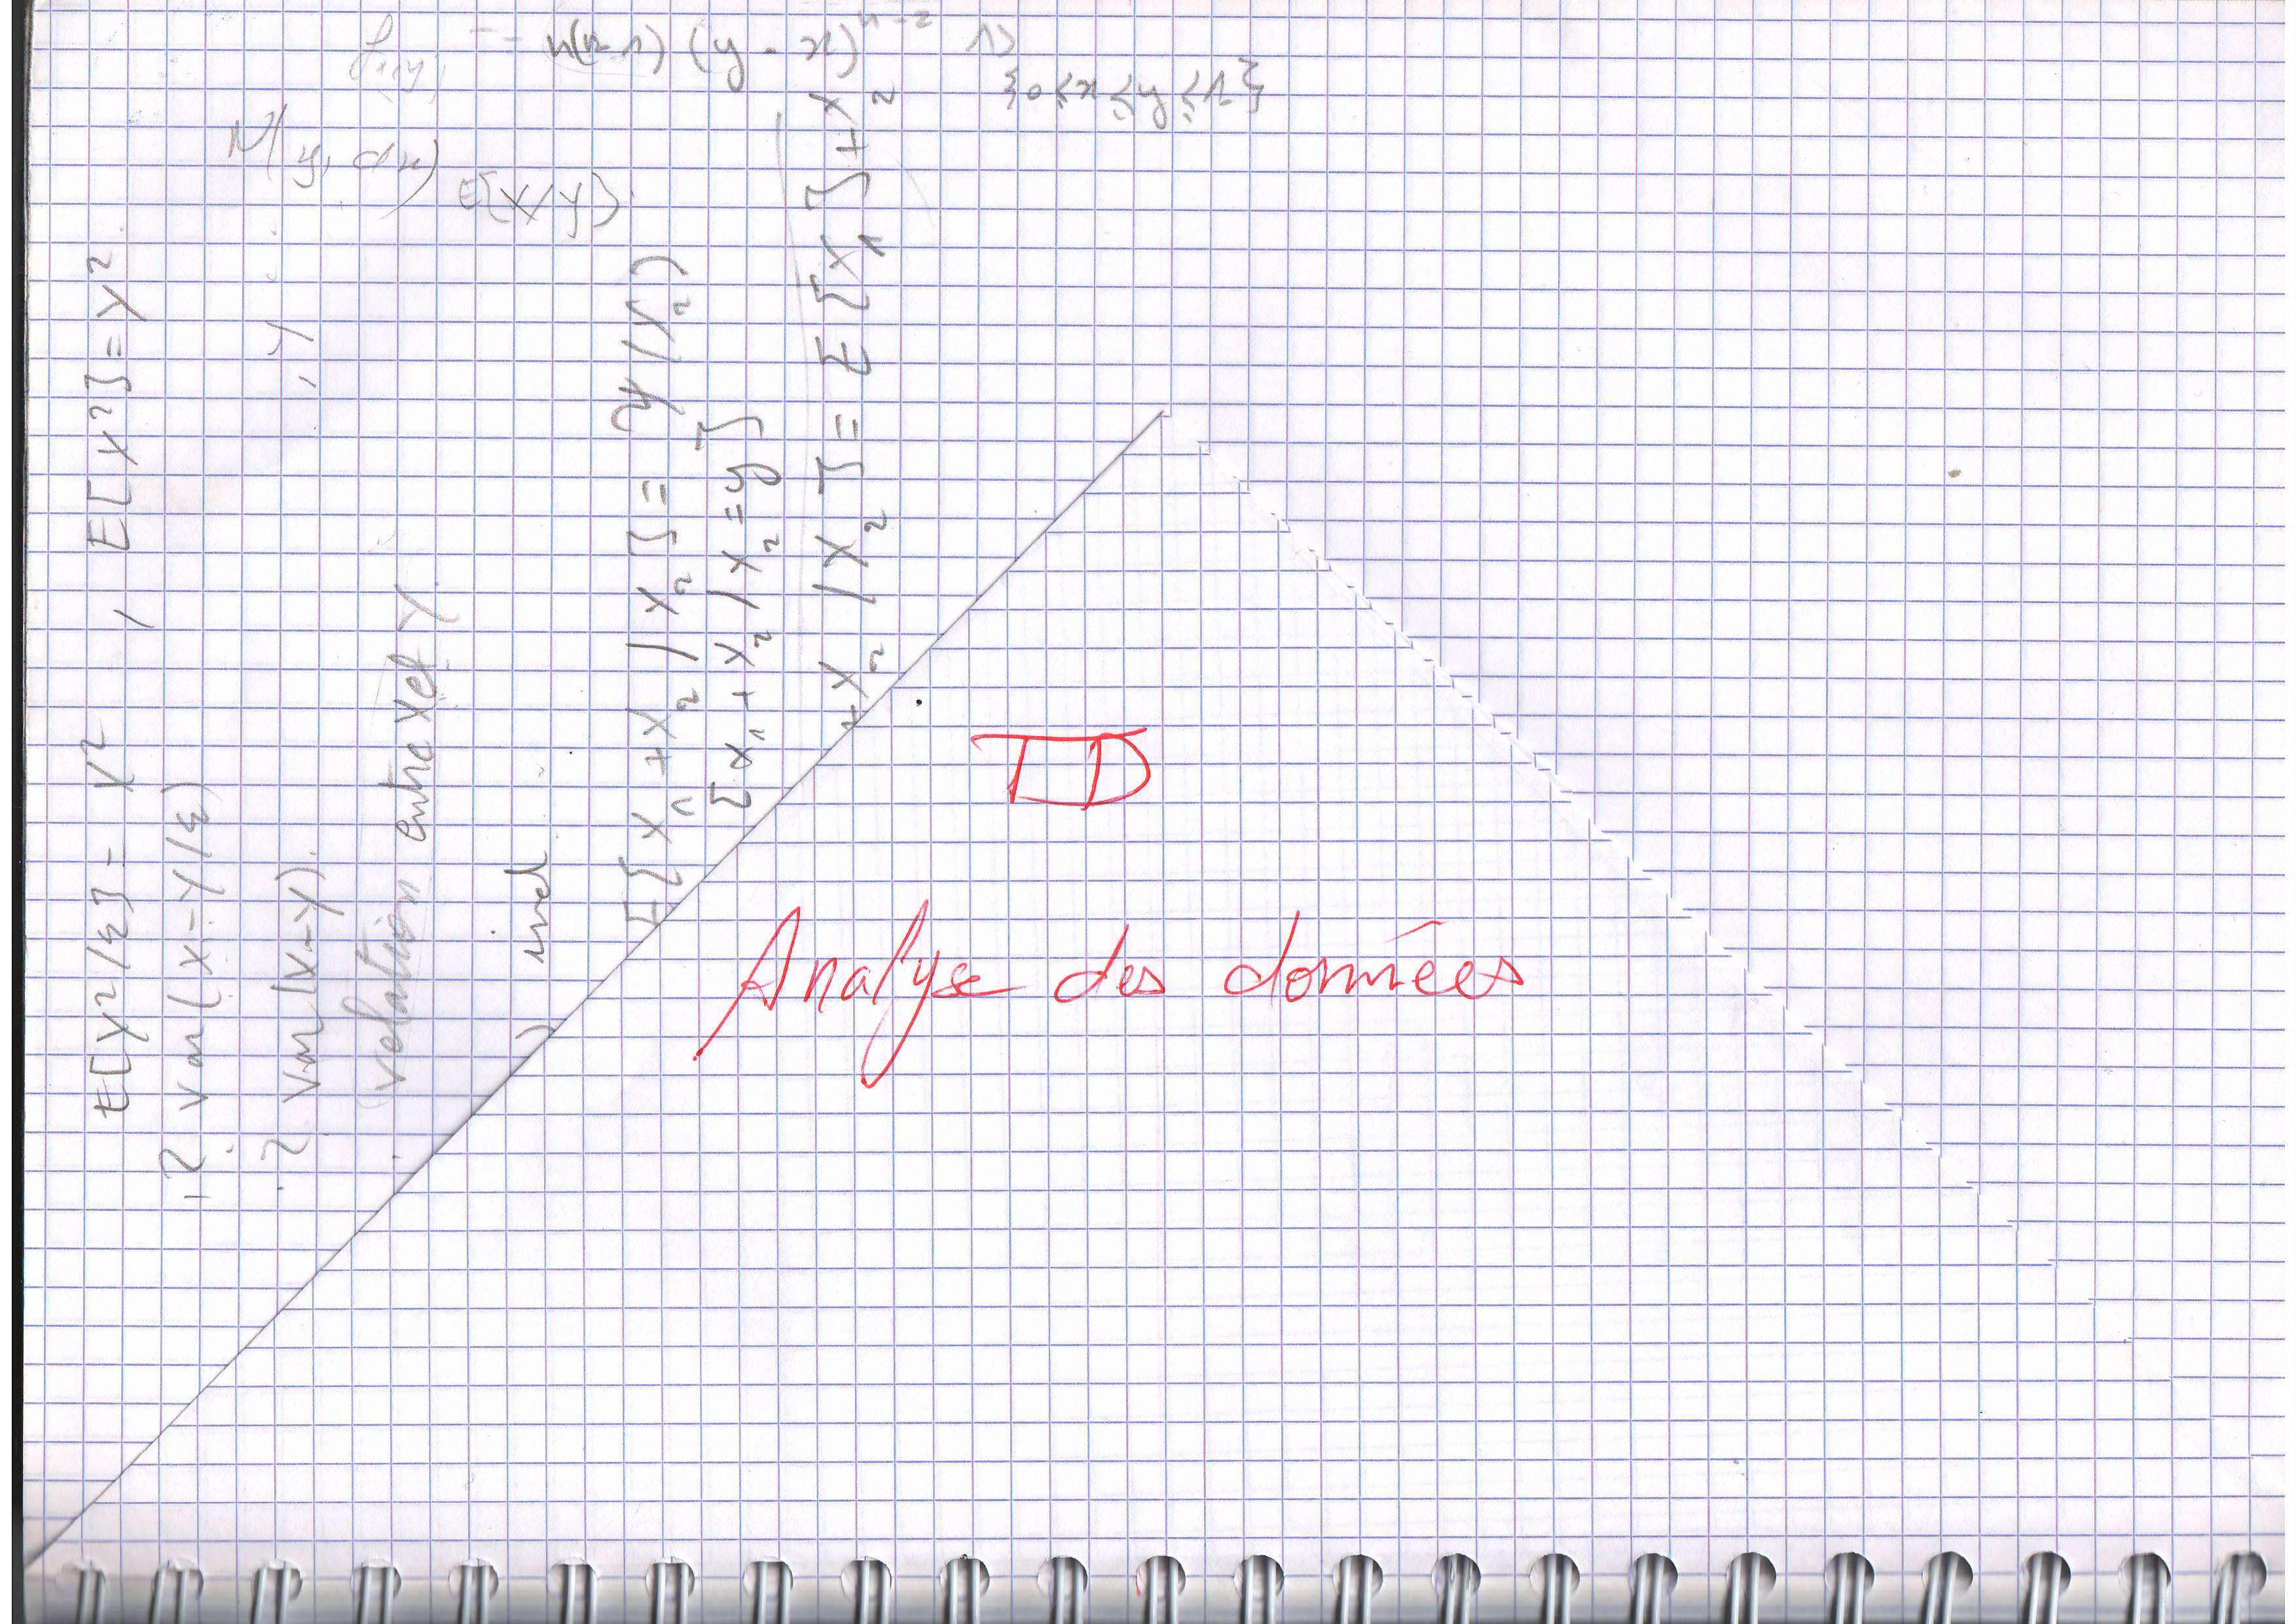 = n(n-1) (y - x)^{n-2} 1
{0≤x≤y≤1}
N(y, dx)
E[X/Y]
E[Y²/ξ] = X² , E[X²] = Y²
? Var(X-Y/ξ)
? Var(X-Y).
, Y
(relation entre X et Y.
) ind
E[X₁+X₂/X₂] = Ψ(X₂)
[X₁+X₂/X₂=y]
+X₂/X₂] = E[X₁]+X₂
TD
Analyse des données